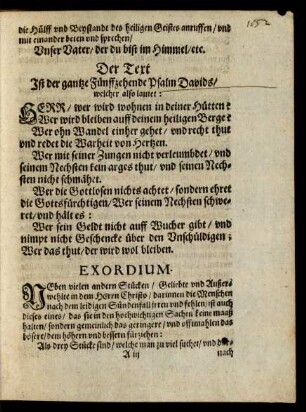 die Hülff vnd Beystandt des heiligen Geistes anruffen/ vnd
mit einander beten vnd sprechen/
Vnser Vater/ der du bist im Himmel/ etc.
Der Text
Ist der gantze Fünffzehende Psalm Davids/
welcher also lautet:
HERR/ wer wird wohnen in deiner Hütten?
Wer wird bleiben auff deinem heiligen Berge?
Wer ohn Wandel einher gehet/ vnd recht thut
vnd redet die Warheit von Hertzen.
Wer mit seiner Zungen nicht verleumbdet/ vnd
seinem Nechsten kein arges thut/ vnd seinen Nech-
sten nicht schmähet.
Wer die Gottlosen nichts achtet/ sondern ehret
die Gottsfürchtigen/ Wer seinem Nechsten schwe-
ret/ vnd hält es:
Wer sein Geldt nicht auff Wucher gibt/ vnd
nimpt nicht Geschencke über den Vnschüldigen:
Wer das thut/ der wird wol bleiben.
EXORDIUM.
NEben vielen andern Stücken/ Geliebte vnd Außer-
wehlte in dem Herrn Christo/ darinnen die Menschen
nach dem leidigen Sündenfall irren vnd fehlen/ ist auch
dieses eines/ das sie in den hochwichtigen Sachen keine maaß
halten/ sondern gemeinlich das geringere/ vnd offtmahlen das
bösere/ dem höhern vnd bessern fürziehen:
Als drey Stücke sind/ welche man zu viel suchet/ vnd dar-
A iij
nach